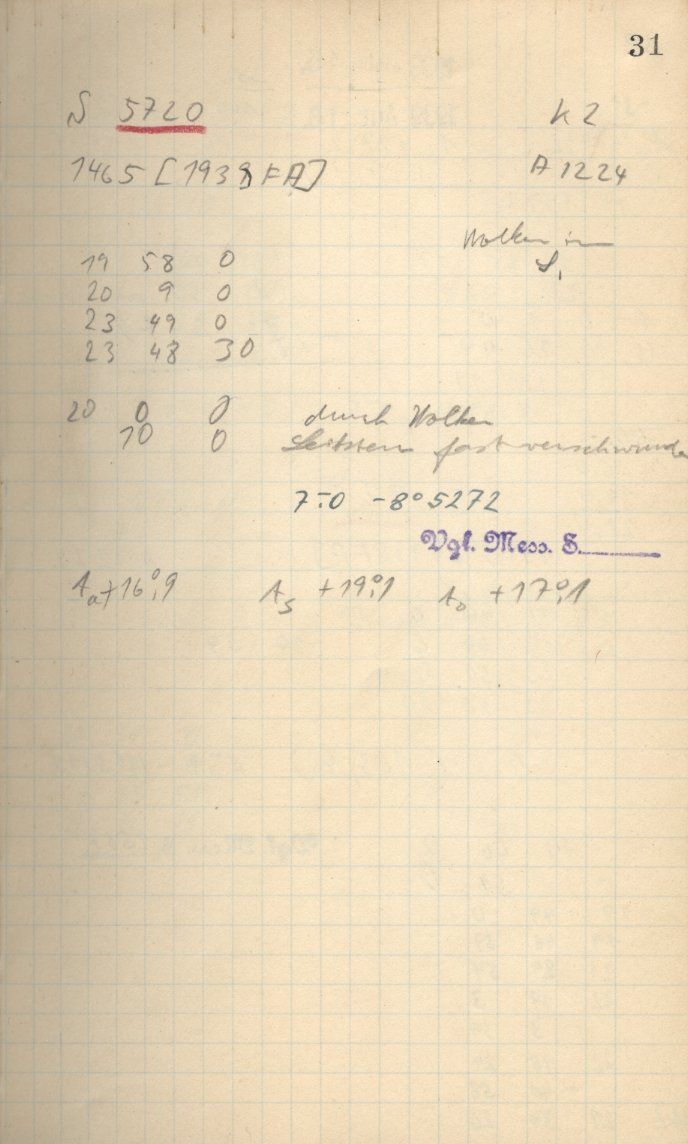 31
S 5720 K 2
1465 [1938 FA] A 1224
Wolken in
S.
19 58 0
20 9 0
23 49 0
23 48 30
20 0 0 durch Wolken
10 0 fast verschwunden
7.0 -8° 5272
Vgl. Mess. S.
A +16°,9 A +19°,1 A +17°,1